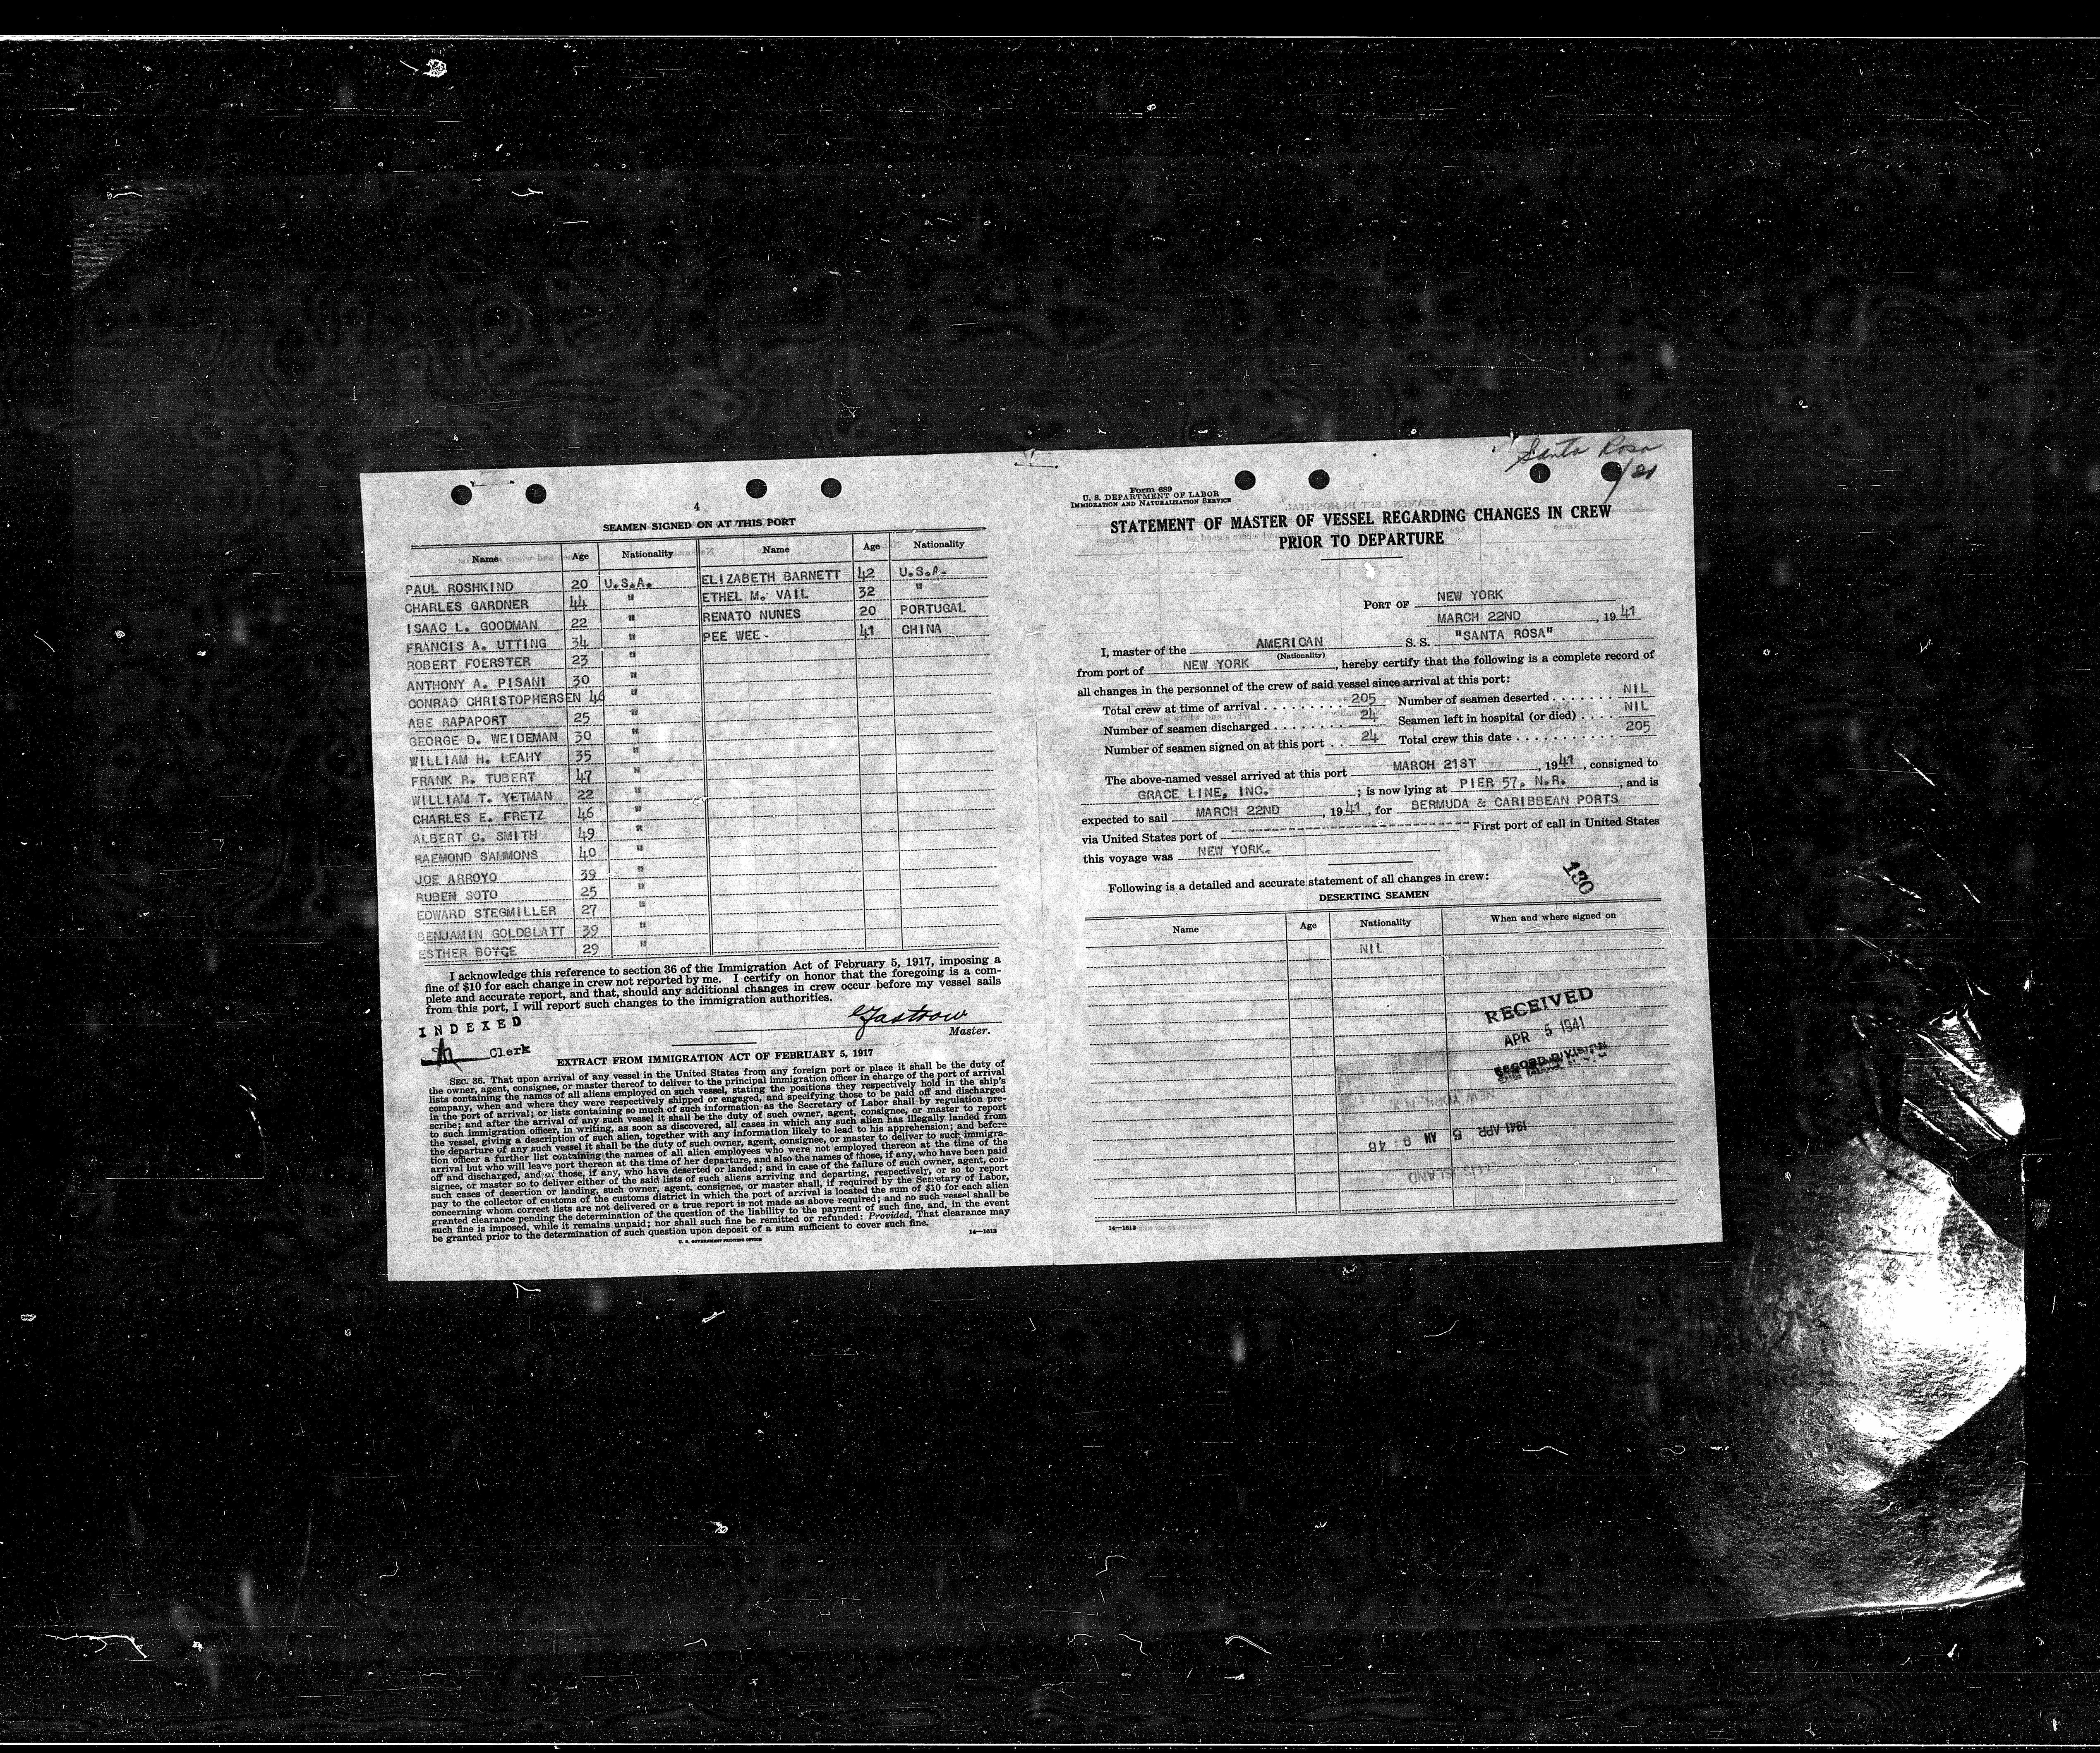 4
SEAMEN SIGNED ON AT THIS PORT
Name Age Nationality Name Age Nationality
PAUL ROSHKIND 20 U.S.A. ELIZABETH BARNETT 42 U.S.A.
CHARLES GARDNER 44 " ETHEL M. VAIL 32 "
ISAAC L. GOODMAN 22 " RENATO NUNES 20 PORTUGAL
FRANCIS A. UTTING 34 " PEE WEE. 41 CHINA
ROBERT FOERSTER 23 "
ANTHONY A. PISANI 30 "
CONRAD CHRISTOPHERSEN 46 "
ABE RAPAPORT 25 "
GEORGE D. WEIDEMAN 30 "
WILLIAM H. LEAHY 35 "
FRANK R. TUBERT 47 "
WILLIAM T. YETMAN 22 "
CHARLES E. FRETZ 46 "
ALBERT C. SMITH 49 "
RAEMOND SAMMONS 40 "
JOE ARROYO 39 "
RUBEN SOTO 25 "
EDWARD STEGMILLER 27 "
BENJAMIN GOLDBLATT 39 "
ESTHER BOYCE 29 "
I acknowledge this reference to section 36 of the Immigration Act of February 5, 1917, imposing a
fine of $10 for each change in crew not reported by me. I certify on honor that the foregoing is a com-
plete and accurate report, and that, should any additional changes in crew occur before my vessel sails
from this port, I will report such changes to the immigration authorities.
INDEXED
Clerk
Master.
EXTRACT FROM IMMIGRATION ACT OF FEBRUARY 5, 1917
SEC. 36. That upon arrival of any vessel in the United States from any foreign port or place it shall be the duty of
the owner, agent, consignee, or master thereof to deliver to the principal immigration officer in charge of the port of arrival
lists containing the names of all aliens employed on such vessel, stating the positions they respectively hold in the ship's
company, when and where they were respectively shipped or engaged, and specifying those to be paid off and discharged
in the port of arrival; or lists containing so much of such information as the Secretary of Labor shall by regulation pre-
scribe; and after the arrival of any such vessel it shall be the duty of such owner, agent, consignee, or master to report
to such immigration officer, in writing, as soon as discovered, all cases in which any such alien has illegally landed from
the vessel, giving a description of such alien, together with any information likely to lead to his apprehension; and before
the departure of any such vessel it shall be the duty of such owner, agent, consignee, or master to deliver to such immigra-
tion officer a further list containing the names of all alien employees who were not employed thereon at the time of the
arrival but who will leave port thereon at the time of her departure, and also the names of those, if any, who have been paid
off and discharged, and of those, if any, who have deserted or landed; and in case of the failure of such owner, agent, con-
signee, or master so to deliver either of the said lists of such aliens arriving and departing, respectively, or so to report
such cases of desertion or landing, such owner, agent, consignee, or master shall, if required by the Secretary of Labor,
pay to the collector of customs of the customs district in which the port of arrival is located the sum of $10 for each alien
concerning whom correct lists are not delivered or a true report is not made as above required; and no such vessel shall be
granted clearance pending the determination of the question of the liability to the payment of such fine, and, in the event
such fine is imposed, while it remains unpaid; nor shall such fine be remitted or refunded: Provided, That clearance may
be granted prior to the determination of such question upon deposit of a sum sufficient to cover such fine.
U. S. GOVERNMENT PRINTING OFFICE 14—1613
Santa Rosa
Form 689
U. S. DEPARTMENT OF LABOR
IMMIGRATION AND NATURALIZATION SERVICE
STATEMENT OF MASTER OF VESSEL REGARDING CHANGES IN CREW
PRIOR TO DEPARTURE
PORT OF NEW YORK
MARCH 22ND, 1941
I, master of the AMERICAN S. S. "SANTA ROSA"
(Nationality)
from port of NEW YORK, hereby certify that the following is a complete record of
all changes in the personnel of the crew of said vessel since arrival at this port:
Total crew at time of arrival 205 Number of seamen deserted NIL
Number of seamen discharged 24 Seamen left in hospital (or died) NIL
Number of seamen signed on at this port 24 Total crew this date 205
The above-named vessel arrived at this port MARCH 21ST, 1941, consigned to
GRACE LINE, INC.; is now lying at PIER 57, N.R., and is
expected to sail MARCH 22ND, 1941, for BERMUDA & CARIBBEAN PORTS
via United States port of ---------- First port of call in United States
this voyage was NEW YORK.
130
Following is a detailed and accurate statement of all changes in crew:
DESERTING SEAMEN
Name Age Nationality When and where signed on
NIL
RECEIVED
APR 5 1941
RECORD DIVISION
1941 APR 5 AM 9:46
14—1613